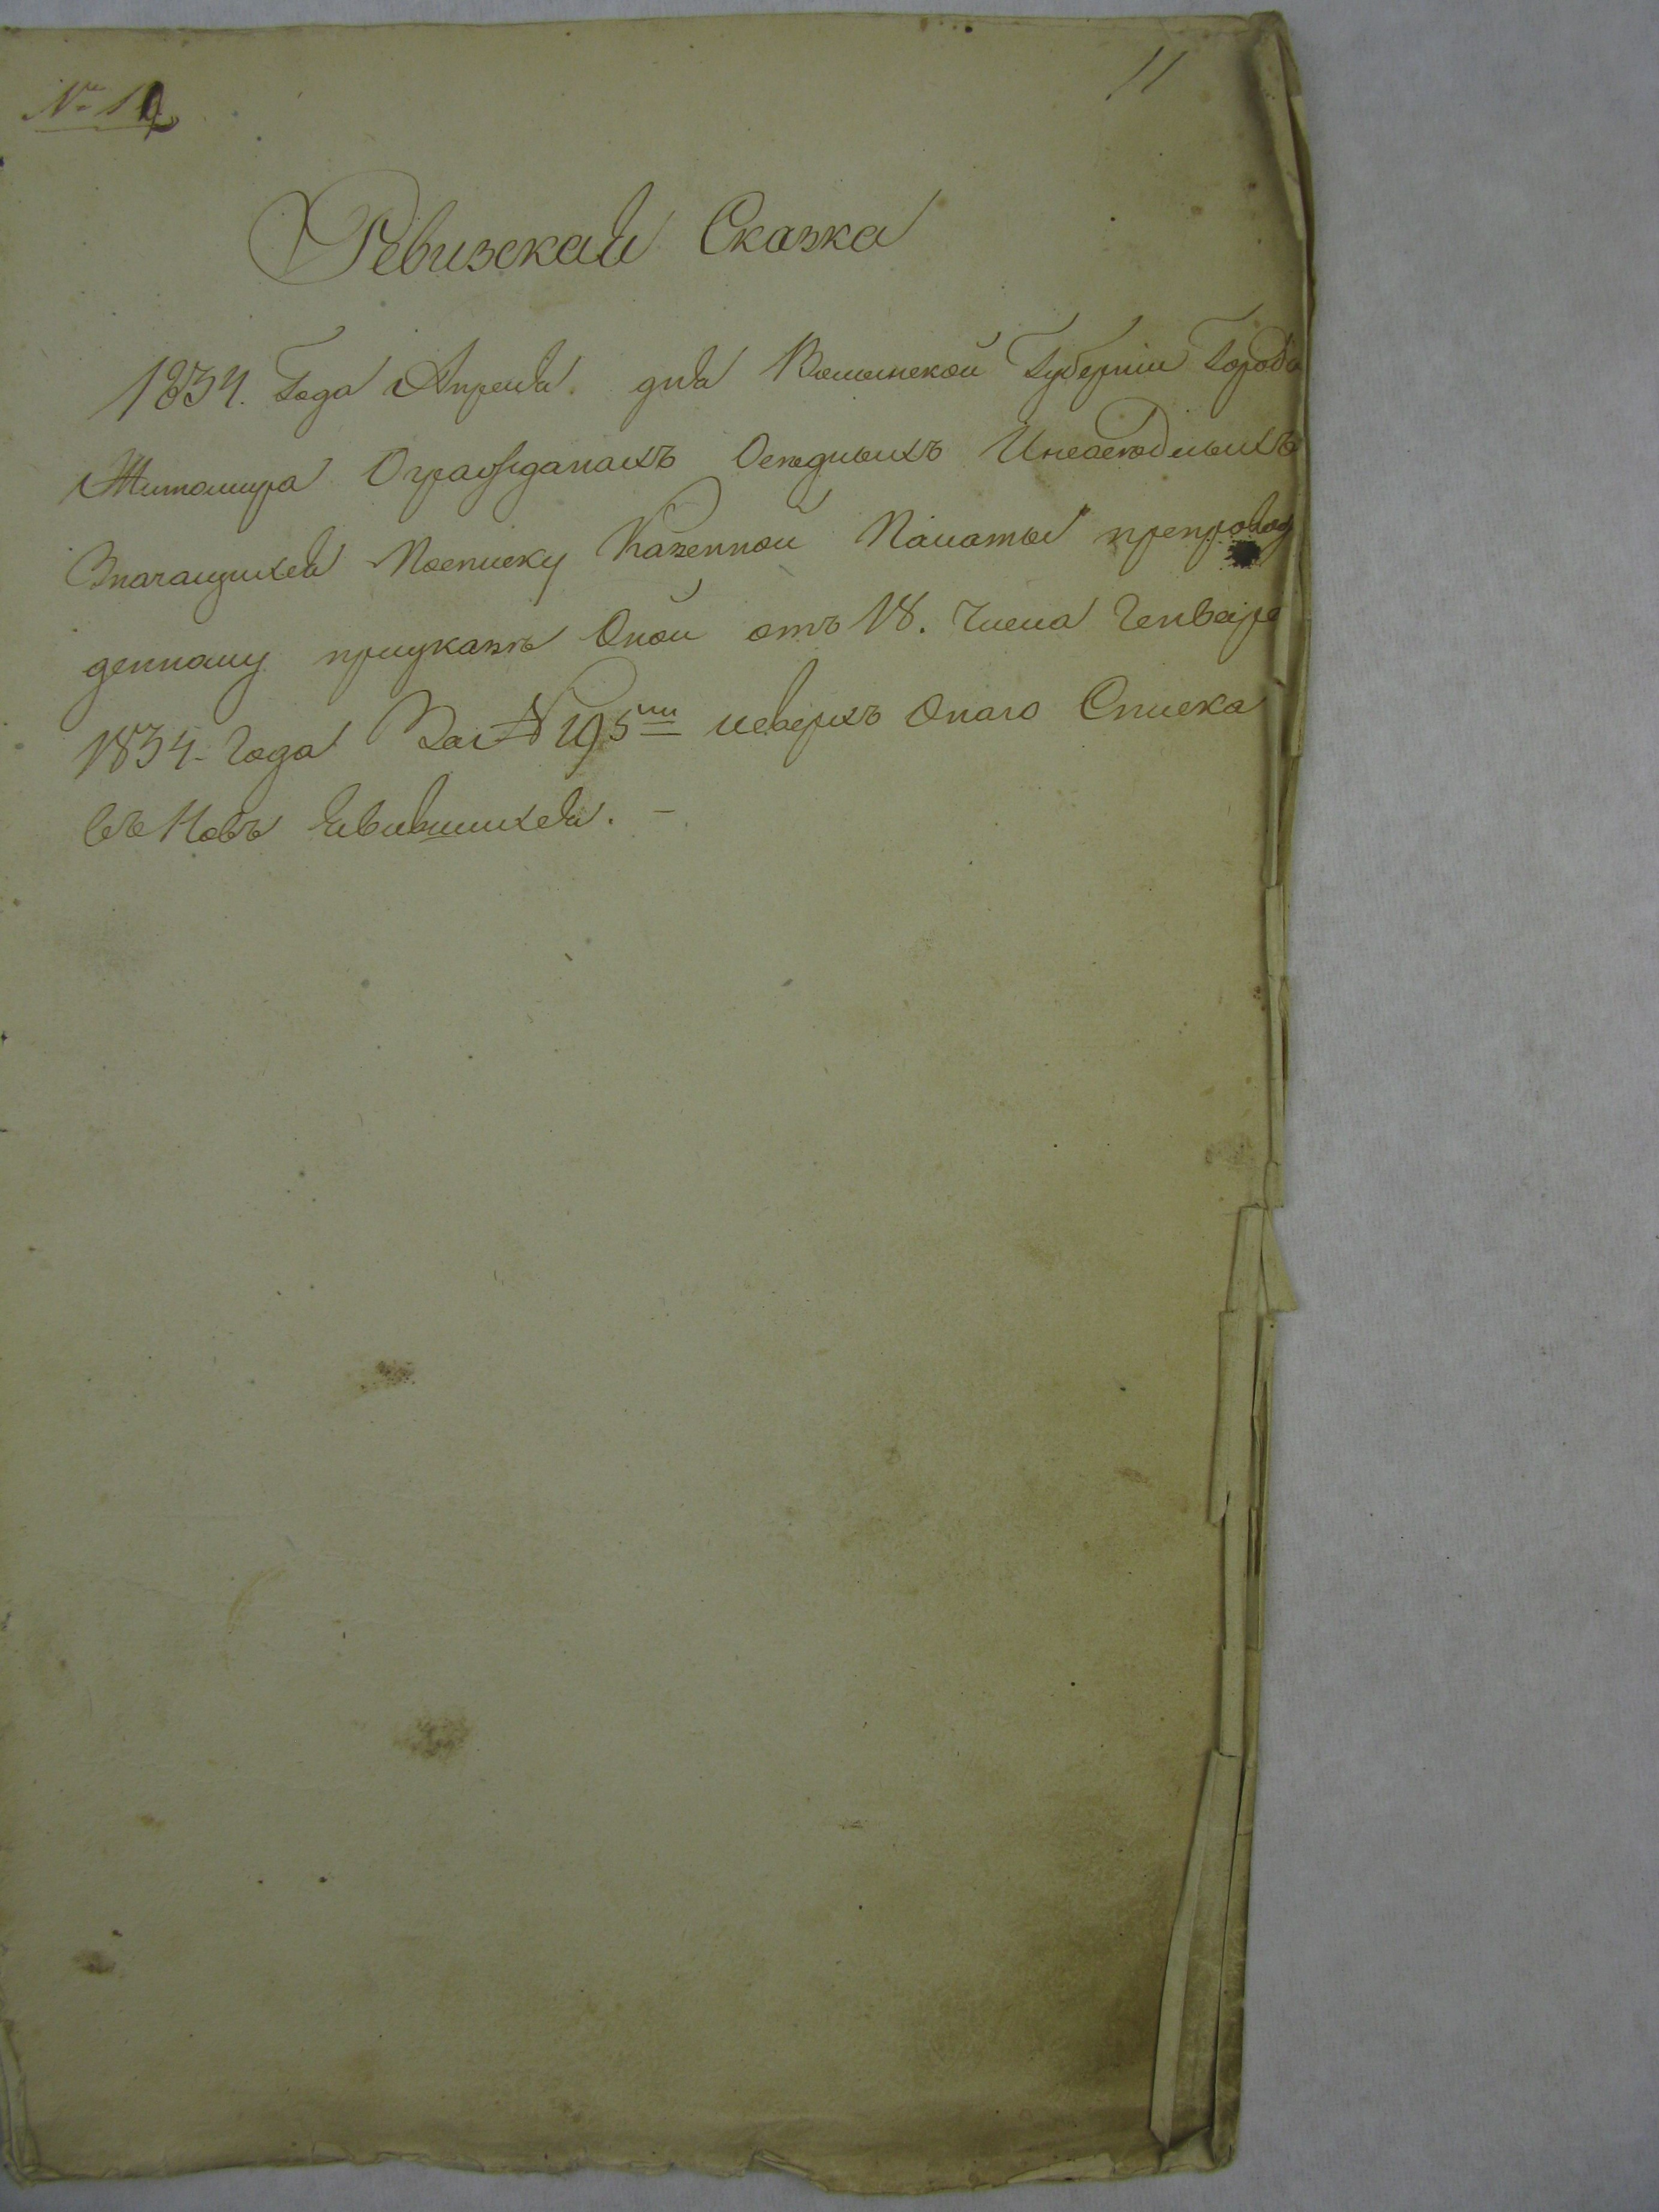 11
Ревизская Сказка
1834. Года Апреля. дня Волынской Губерніи Города
Житомира Огражданахъ Оседлыхъ Инеоседлыхъ
Значащихся Посписку Казенной Палаты препровож
денному приуказѣ Оной отъ 18. Числа Генваря
1834. Года За № 195ᵐⁱ исверхъ Онаго Списка
въ Новь Явившихся. –